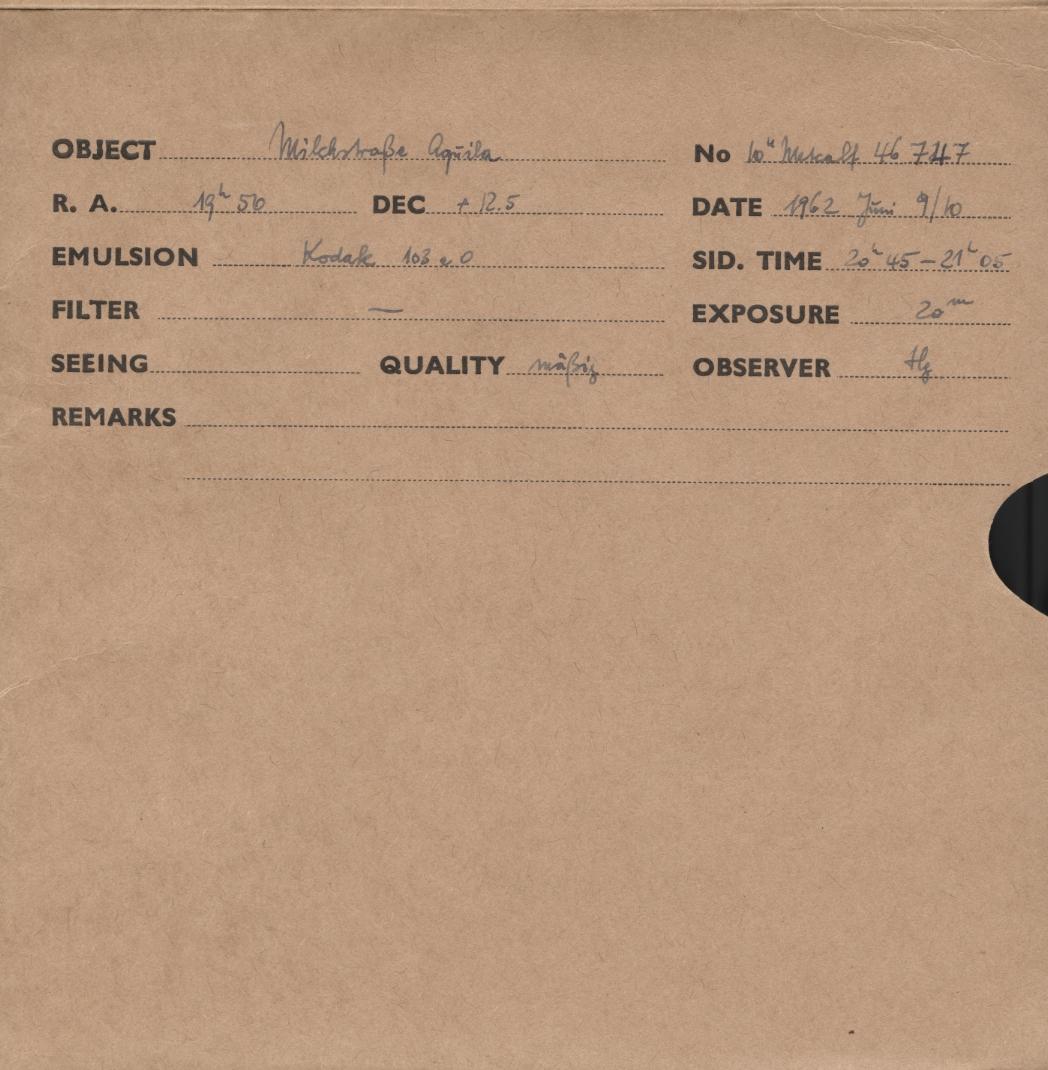 OBJECT Milchstraße Aquila No 10" Metcalf 46 747
R. A. 19h 50 DEC + 12.5 DATE 1962 Juni 9/10
EMULSION Kodak 103 a O SID. TIME 20h 45 – 21h 05
FILTER — EXPOSURE 20m
SEEING QUALITY mäßig OBSERVER
REMARKS